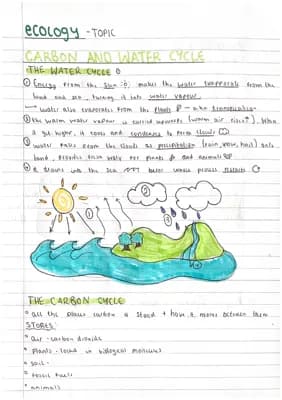 ecology - TOPIC
CARBON AND WATER CYCLE
THE WATER CYCLE
① Energy from the Sun makes the water evaporate from the
land and sea, turning it into water vapour.
water also evaporates from the plants - transpiration
② the warm water vapour is carried upwards (warm air rises). When
it gets higher, it cools and condenses to form clouds
③ water falls from the clouds as precipitation (rain, snow, hail) onto
land, provides fresh water for plants and animals
④ it drains into the sea before whole process restarts
①
②
③
④
THE CARBON CYCLE
• all the places carbon is stored + how it moves between them
STORES:
• air - carbon dioxide
• plants - locked in biological molecules
• soil
• fossil fuels
• animals